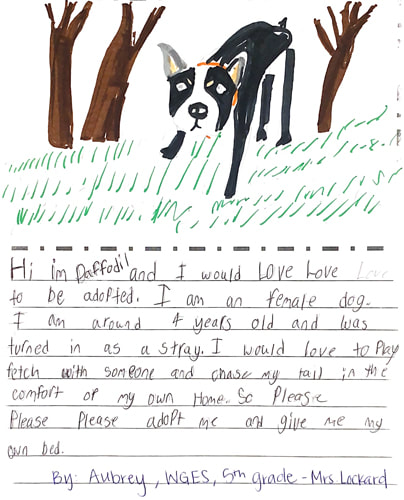 Hi im Daffodil and I would LOVE Love Love
to be adopted. I am an female dog.
I am around 4 years old and was
turned in as a stray. I would love to Play
fetch with someone and chase my tail in the
comfort of my own Home. So Please
Please Please adopt me and give me my
own bed.
By: Aubrey, WGES, 5th grade - Mrs Lockard